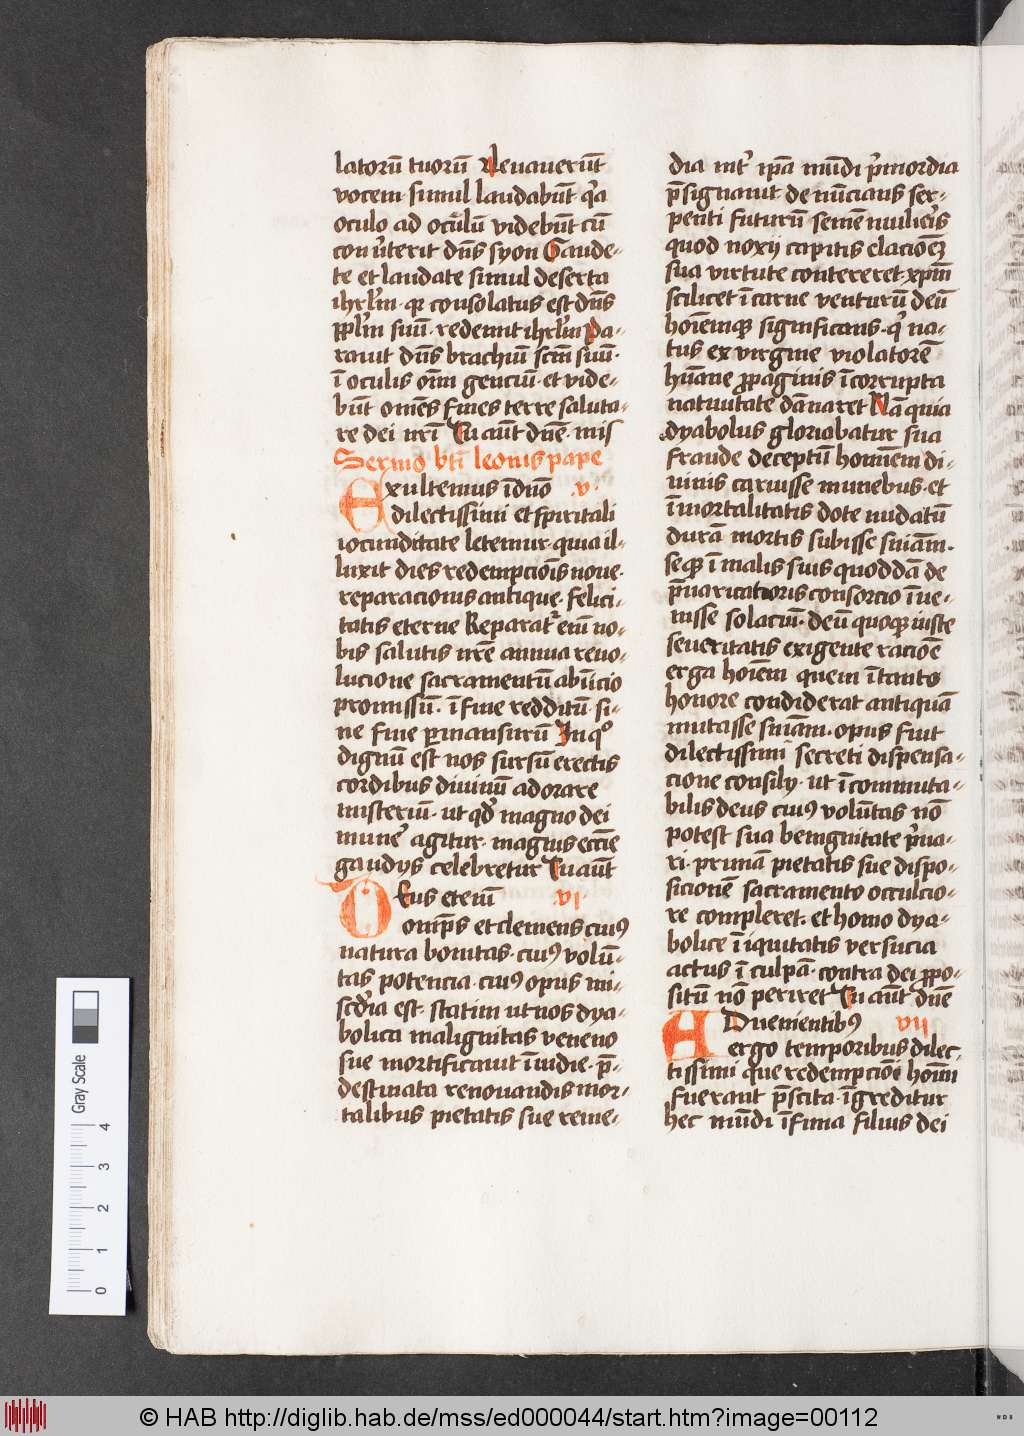 latorū tuorū leuauerūt
vocem simul laudabūt qͥa
oculo ad oculū videbūt cū
conuͥterit dn̄s syon Gaude-
te et laudate simul deserta
ihrl̄m · qꝛ consolatus est dn̄s
ppl̄m suū · redemit ihrl̄m Pa-
rauit dn̄s brachiū scm̄ suū ·
ī oculis om̄ genciū · et vide-
būt om̄es fines terre saluta-
re dei nr̄i Tu aūt dn̄e · mis
Sermo bt̄i leonis pape
Exultemus ī dn̄o v ·
dilectissimi et spiritali
iocunditate letemur · quia il-
luxit dies redempciōis noue ·
reparacionis antique · felici-
tatis eterne Reparatᷣ em̄ no-
bis salutis nr̄e annua reuo-
lucione sacramentū ab īicio
promissū · ī fine redditū · si-
ne fine ꝑmansurū In qͦ
dignū est nos sursū erectis
cordibus diuinū adorare
misteriū · ut qd̄ magno dei
munēe agitur · magnis eccīe
gaudijs celebretur Tu aūt
Deus etenī vi ·
omp̄s et clemens cuiꝰ
natura bonitas · cuiꝰ volū-
tas potencia · cuiꝰ opus mi-
scd̓ia est · statim ut nos dya-
bolica malignitas veneno
sue mortificauit īuidie · p̄-
destinata renouandis mor-
talibus pietatis sue reme-
dia intᷣ ip̄a mūdi pͥmordia
p̄signauit · denūcians ser-
penti futurū semē mulieris
quod noxij capitis elacionēꝫ
sua virtute contereret · xp̄m
scilicet ī carne venturū deū
hoīemqꝫ significans · qͥ na-
tus ex virgine violatorē
hūane ꝓpaginis īcorrupta
natiuitate dānaret Nā quia
dyabolus gloriabatur sua
fraude deceptū hominem di-
uinis caruisse muneribus · et
īmortalitatis dote nudatū
durā mortis subisse sn̄iam ·
seqꝫ ī malis suis quoddā de
p̄uaricatoris consorcio īue-
nisse solaciū · deū quoqꝫ iuste
seueritatis exigente racioē
erga hoīem quem ī tanto
honore condiderat antiquā
mutasse sn̄iam · opus fuit
dilectissimi secreti dispensa-
cione consilij · ut īcommuta-
bilis deus cuiꝰ volūtas nō
potest sua benignitate pͥua-
ri · primam pietatis sue dispo-
sicionē sacramento occulcio-
re compleret · et homo dya-
bolice īiquitatis versucia
actus ī culpā · contra dei ꝓpo-
sitū nō periret Tu aūt dn̄e
Aduenientibꝰ vii
ergo temporibus dilec-
tissimi que redempcioni hoīm
fuerant p̄scita · īgreditur
hec mūdi īfima filius dei
Gray Scale
0 1 2 3 4
© HAB http://diglib.hab.de/mss/ed000044/start.htm?image=00112